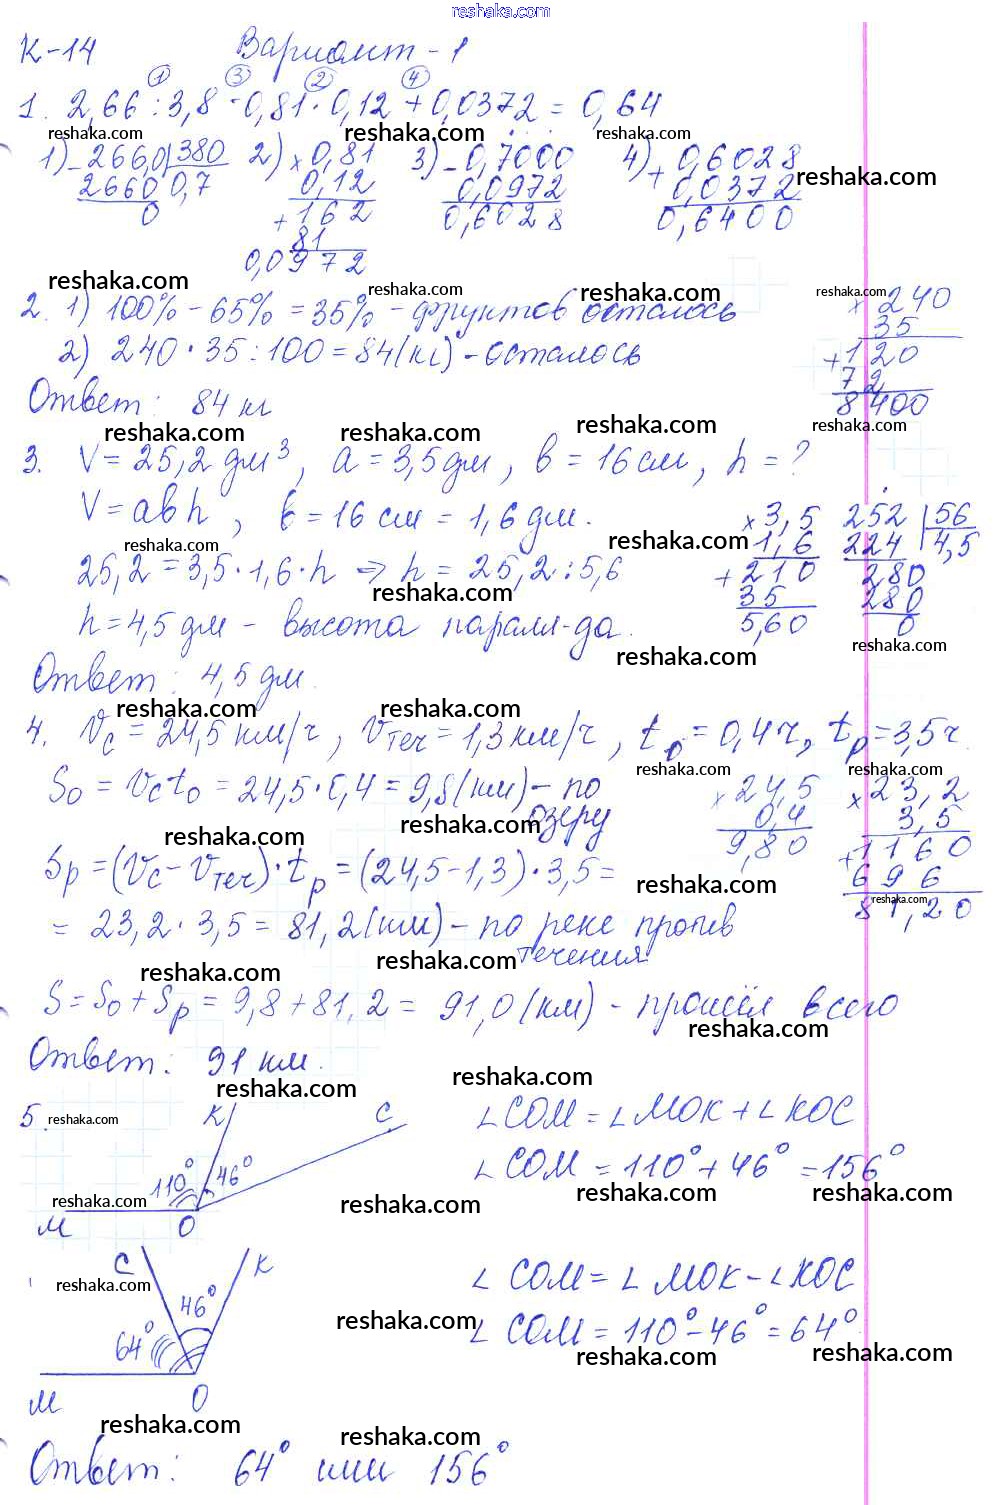 reshaka.com
К-14 Вариант-1
① ③ ② ④
1. 2,66 : 3,8 - 0,81 · 0,12 + 0,0372 = 0,64
reshaka.com reshaka.com reshaka.com
1) - 266,0 | 380 2) × 0,81 3) - 0,7000 4) + 0,6028
2660 0,7 0,12 0,0972 0,0372 reshaka.com
0 + 162 0,6028 0,6400
81
0,0972
reshaka.com reshaka.com reshaka.com reshaka.com
2. 1) 100% - 65% = 35% - фруктов осталось × 240
35
2) 240 · 35 : 100 = 84 (кг) - осталось + 120
72
Ответ: 84 кг 8400
reshaka.com reshaka.com reshaka.com reshaka.com
3. V = 25,2 дм³, a = 3,5 дм, b = 16 см, h = ?
V = abh, b = 16 см = 1,6 дм. × 3,5 252 | 56
reshaka.com reshaka.com 1,6 224 4,5
25,2 = 3,5 · 1,6 · h => h = 25,2 : 5,6 + 210 280
reshaka.com 35 280
h = 4,5 дм - высота паралл-да. 5,60 0
reshaka.com reshaka.com
Ответ: 4,5 дм.
reshaka.com reshaka.com
4. Vс = 24,5 км/ч, Vтеч = 1,3 км/ч, to = 0,4 ч, tр = 3,5 ч.
reshaka.com reshaka.com
So = Vсto = 24,5 · 0,4 = 9,8 (км) - по × 24,5 × 23,2
озеру 0,4 3,5
reshaka.com reshaka.com 9,80 + 1160
Sр = (Vс - Vтеч) · tр = (24,5 - 1,3) · 3,5 = 696
reshaka.com reshaka.com 81,20
= 23,2 · 3,5 = 81,2 (км) - по реке против
течения
reshaka.com reshaka.com
S = So + Sр = 9,8 + 81,2 = 91,0 (км) - прошёл всего
reshaka.com
Ответ: 91 км.
reshaka.com reshaka.com
5. reshaka.com К С ∠СОМ = ∠МОК + ∠КОС
110° 46° ∠СОМ = 110° + 46° = 156°
reshaka.com reshaka.com reshaka.com reshaka.com
М О
С К ∠СОМ = ∠МОК - ∠КОС
reshaka.com 46° reshaka.com
64° ∠СОМ = 110° - 46° = 64°
reshaka.com reshaka.com
М О
reshaka.com reshaka.com
Ответ: 64° или 156°